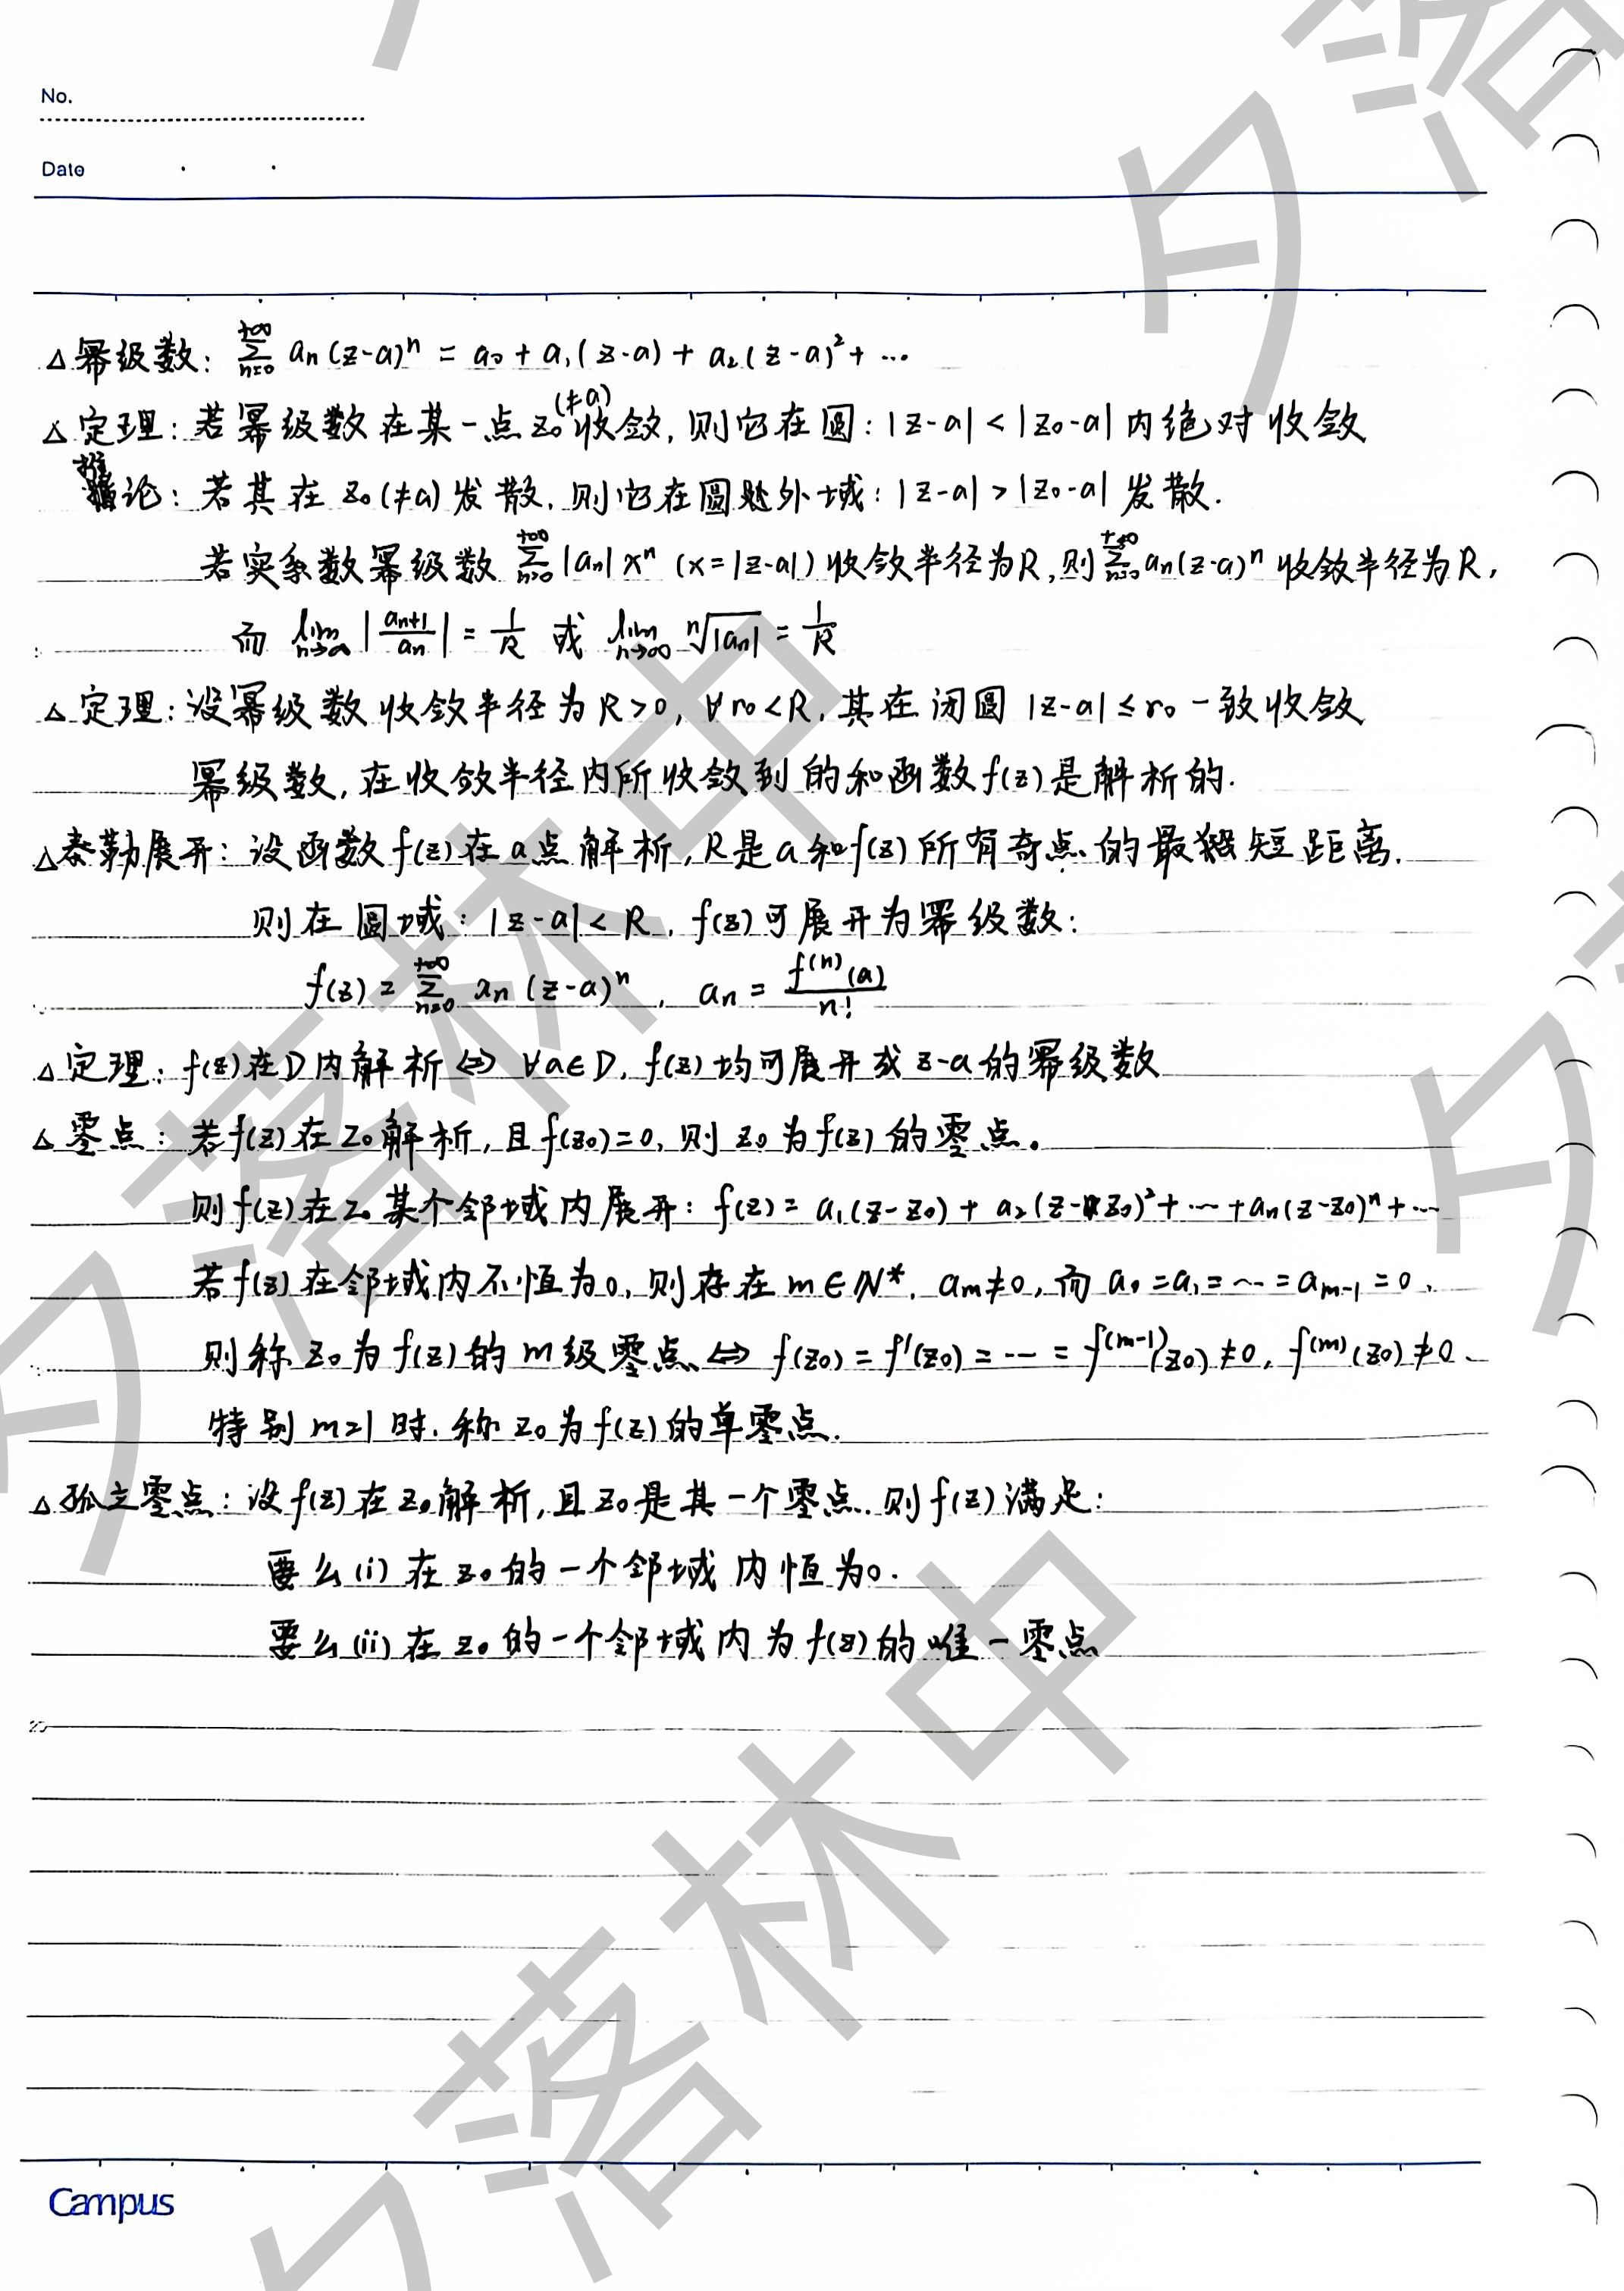 No.
Date
△幂级数: $\sum_{n=0}^{+\infty} a_n(z-a)^n = a_0 + a_1(z-a) + a_2(z-a)^2 + \cdots$
△定理: 若幂级数在某一点 $z_0$ (≠a) 收敛, 则它在圆: |z-a| < |z_0-a| 内绝对收敛
推论: 若其在 $z_0$ (≠a) 发散, 则它在圆外域: |z-a| > |z_0-a| 发散.
若实系数幂级数 $\sum_{n=0}^{+\infty} |a_n| x^n$ (x=|z-a|) 收敛半径为R, 则 $\sum_{n=0}^{+\infty} a_n(z-a)^n$ 收敛半径为R,
而 $\lim_{n\to\infty} |\frac{a_{n+1}}{a_n}| = \frac{1}{R}$ 或 $\lim_{n\to\infty} \sqrt[n]{|a_n|} = \frac{1}{R}$
△定理: 设幂级数收敛半径为 R>0, ∀r_0<R, 其在闭圆 |z-a| ≤ r_0 一致收敛
幂级数, 在收敛半径内所收敛到的和函数f(z)是解析的.
△泰勒展开: 设函数f(z)在a点解析, R是a和f(z)所有奇点的最短距离.
则在圆域: |z-a| < R, f(z)可展开为幂级数:
$f(z) = \sum_{n=0}^{+\infty} a_n(z-a)^n$, $a_n = \frac{f^{(n)}(a)}{n!}$
△定理: f(z)在D内解析 ⇔ ∀a∈D, f(z)均可展开成z-a的幂级数
△零点: 若f(z)在$z_0$解析, 且f($z_0$)=0, 则$z_0$为f(z)的零点。
则f(z)在$z_0$某个邻域内展开: $f(z) = a_1(z-z_0) + a_2(z-z_0)^2 + \cdots + a_n(z-z_0)^n + \cdots$
若f(z)在邻域内不恒为0, 则存在m∈N*, $a_m≠0$, 而 $a_0=a_1=\cdots=a_{m-1}=0$,
则称$z_0$为f(z)的m级零点 ⇔ $f(z_0)=f'(z_0)=\cdots=f^{(m-1)}(z_0)≠0, f^{(m)}(z_0)≠0$、
特别m=1时, 称$z_0$为f(z)的单零点.
△孤立零点: 设f(z)在$z_0$解析, 且$z_0$是其一个零点. 则f(z)满足:
要么(i) 在$z_0$的一个邻域内恒为0.
要么(ii) 在$z_0$的一个邻域内为f(z)的唯一零点
Campus
夕落林中
夕落林中
夕落
夕